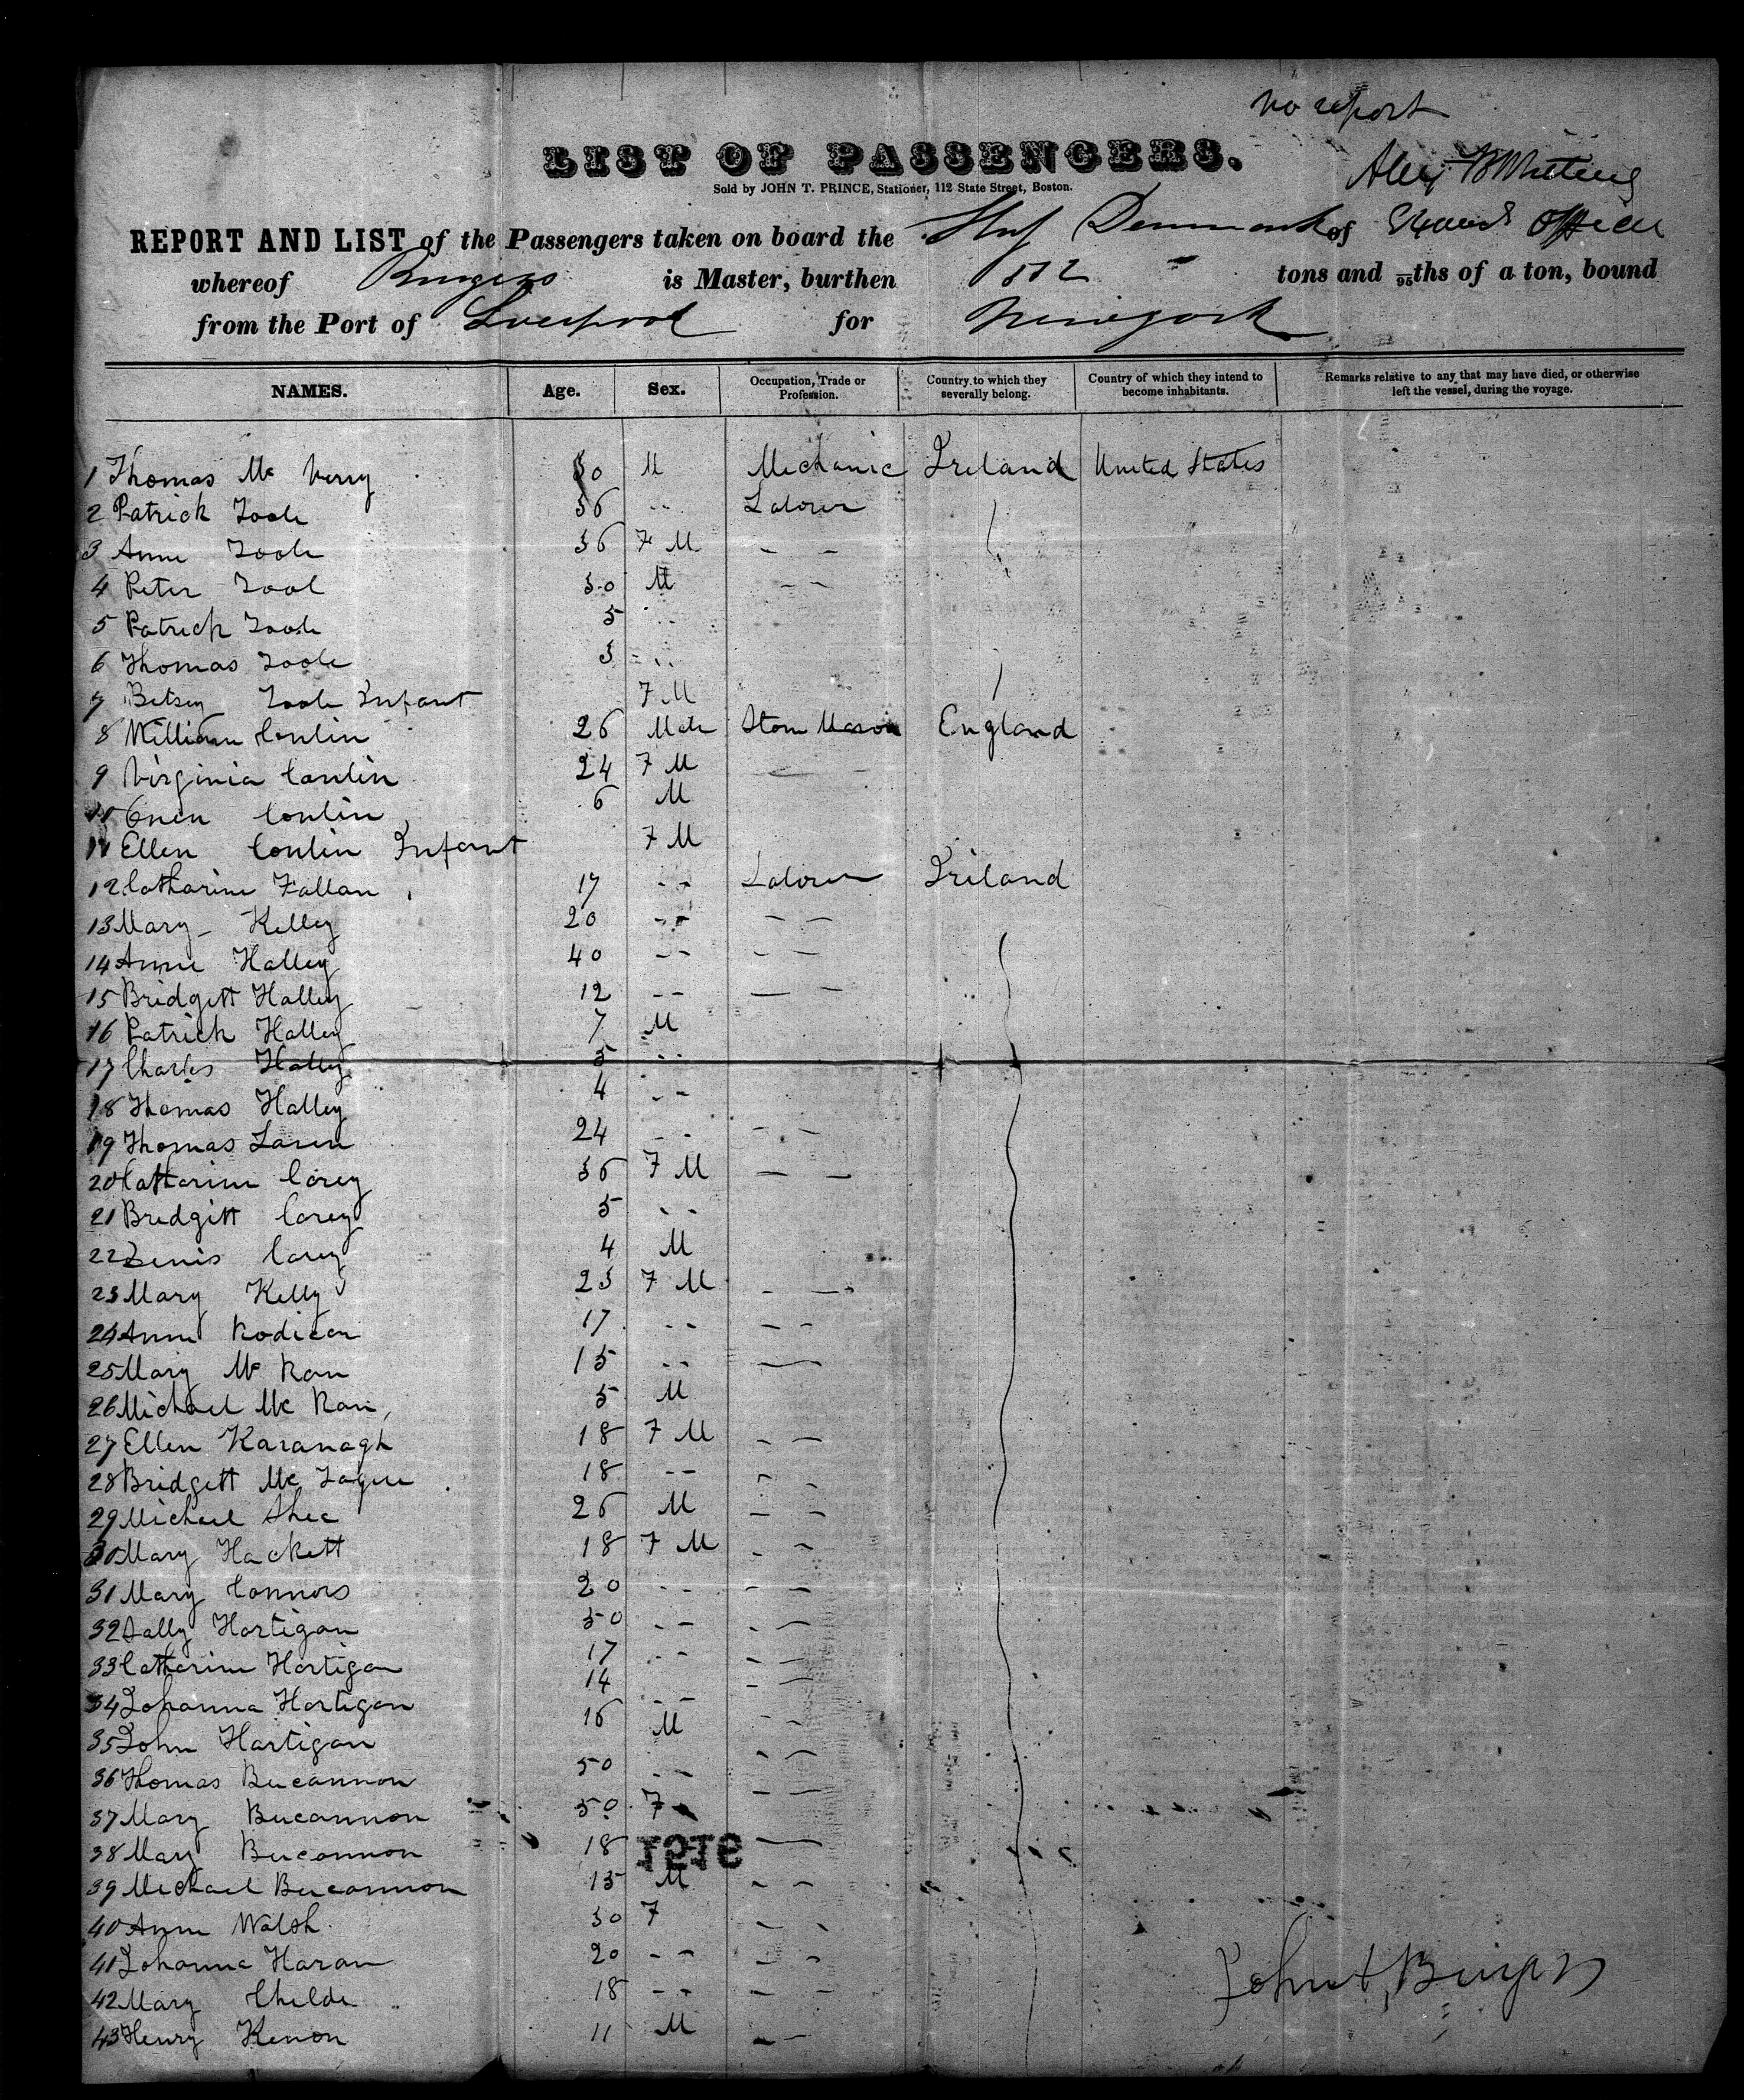 no report
LIST OF PASSENGERS.
Sold by JOHN T. PRINCE, Stationer, 112 State Street, Boston.
REPORT AND LIST of the Passengers taken on board the Ship Denmark of
whereof is Master, burthen tons and 95ths of a ton, bound
from the Port of Liverpool for New york
NAMES. Age. Sex. Occupation, Trade or Profession. Country to which they severally belong. Country of which they intend to become inhabitants. Remarks relative to any that may have died, or otherwise left the vessel, during the voyage.
1 Thomas Mc Verry 30 M Mechanic Ireland United States
2 Patrick Toole 36 " Laborer
3 Anne Toole 36 F M - -
4 Peter Tool 30 M - -
5 Patrick Toole 5 "
6 Thomas Toole 3 "
7 Betsey Toole Infant F M
8 William Conlin 26 Male Stone Mason England
9 Virginia Conlin 24 F M - -
10 Owen Conlin 6 M
11 Ellen Conlin Infant F M
12 Catharine Fallan 17 - - Laborer Ireland
13 Mary Kelley 20 - - - -
14 Anne Halley 40 - - - -
15 Bridgett Halley 12 - - - -
16 Patrick Halley 7 M
17 Charles Halley 5 - -
18 Thomas Halley 4 - -
19 Thomas Laren 24 - - - -
20 Catharine Corey 36 F M - -
21 Bridgitt Corey 5 - -
22 Denis Corey 4 M
23 Mary Kelly 23 F M - -
24 Anne Rodican 17 - - - -
25 Mary Mc Ran 15 - - -
26 Michael Mc Ran 5 M
27 Ellen Kavanagh 18 F M - -
28 Bridgett Mc Tague 18 - - -
29 Michael Shea 26 M - -
30 Mary Hackett 18 F M - -
31 Mary Connors 20 - - - -
32 Sally Hartigan 50 - - - -
33 Catharine Hartigan 17 - - - -
34 Johanna Hartigan 14 - - - -
35 John Hartigan 16 M - -
36 Thomas Bucannon 50 - - - -
37 Mary Bucannon 50 F - -
38 Mary Bucannon 18 -
39 Michael Bucannon 15 M - -
40 Anne Walsh 30 F - -
41 Johanna Haran 20 - - - -
42 Mary Childe 18 - - - -
43 Henry Kenon 11 M - -